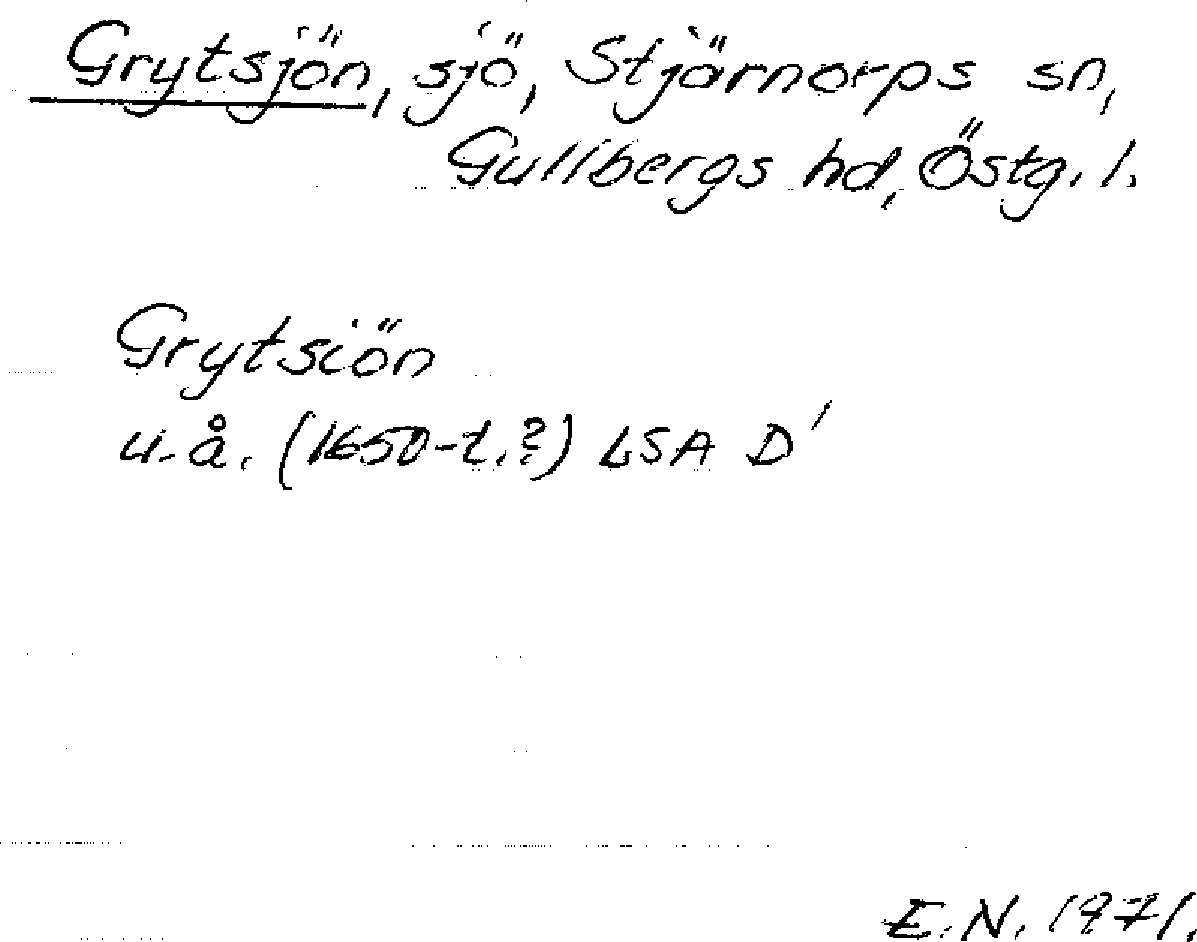 Grytsjön, sjö, Stjärnorps sn,
Gullbergs hd, Östg. l.
Grytsiön
u.å. (1650-t.?) LSA D'
E.N. 1971.